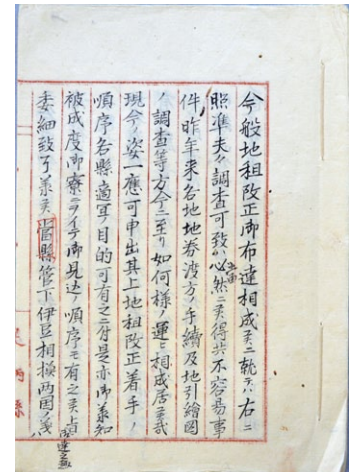 今般地租改正御布達相成候ニ就テハ右ニ
照準夫々調査可致ハ必然ニ候得共不容易事
件昨年来各地地券渡方ノ手續及地引繪圖
ノ調査等方今ニ至リ如何様ノ運ニ相成居候哉
現今ノ姿一應可申出其上地租改正着手ノ
順序各縣適宜目的可有之ニ付是亦御承知
被成度御寮ニ御見込ノ順序モ有之候
委細致了承候當縣管下伊豆相模両国ノ義
足柄縣